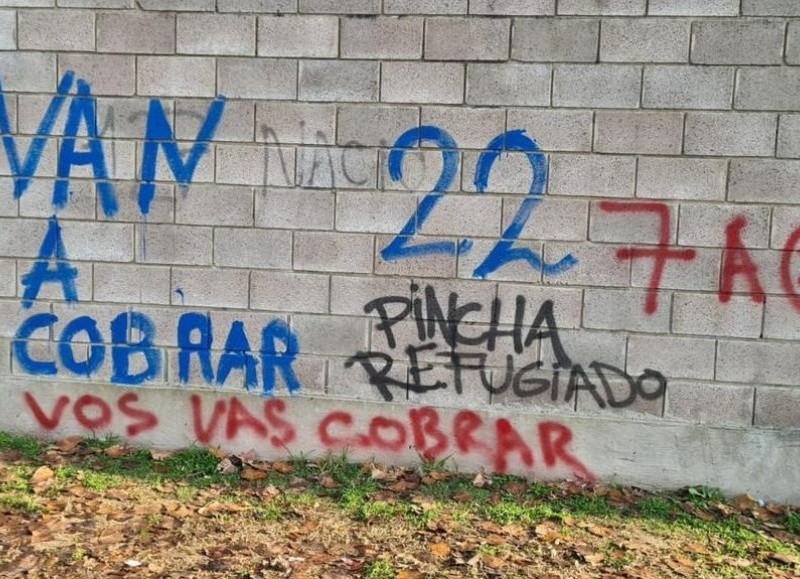 VAN
A
COBRAR
NACIO
22
7 AG
PINCHA
REFUGIADO
VOS VAS COBRAR